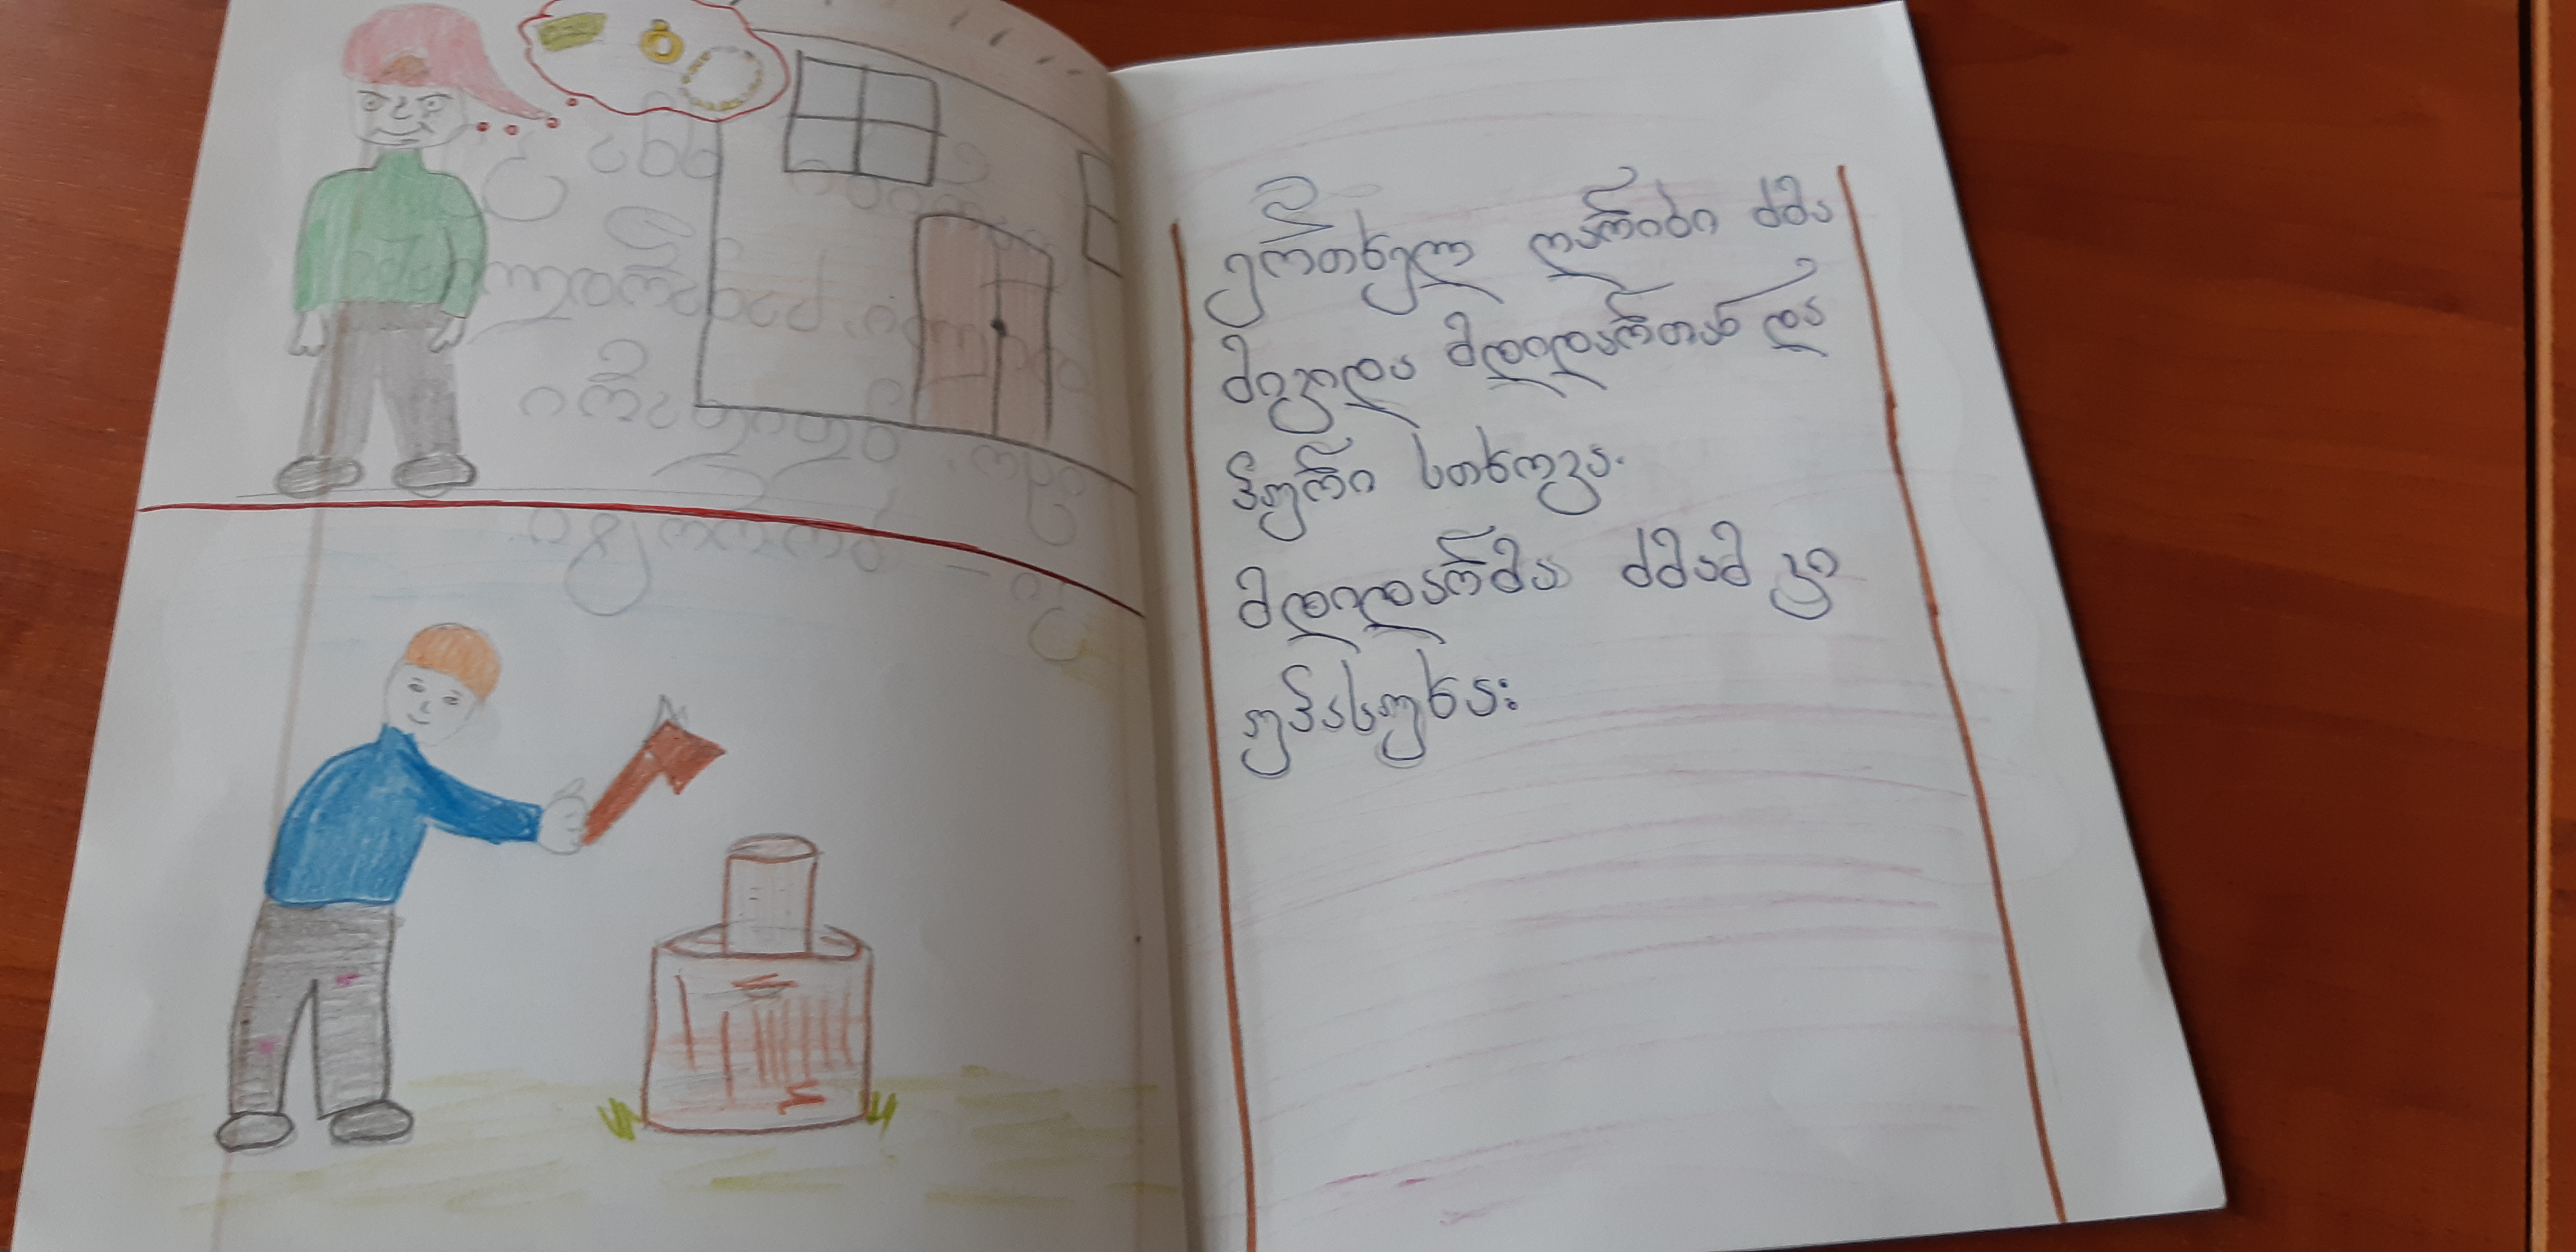 ერთხელ ღარიბი ძმა
მივიდა მდიდართან და
პური სთხოვა.
მდიდარმა ძმამ კი
უპასუხა: